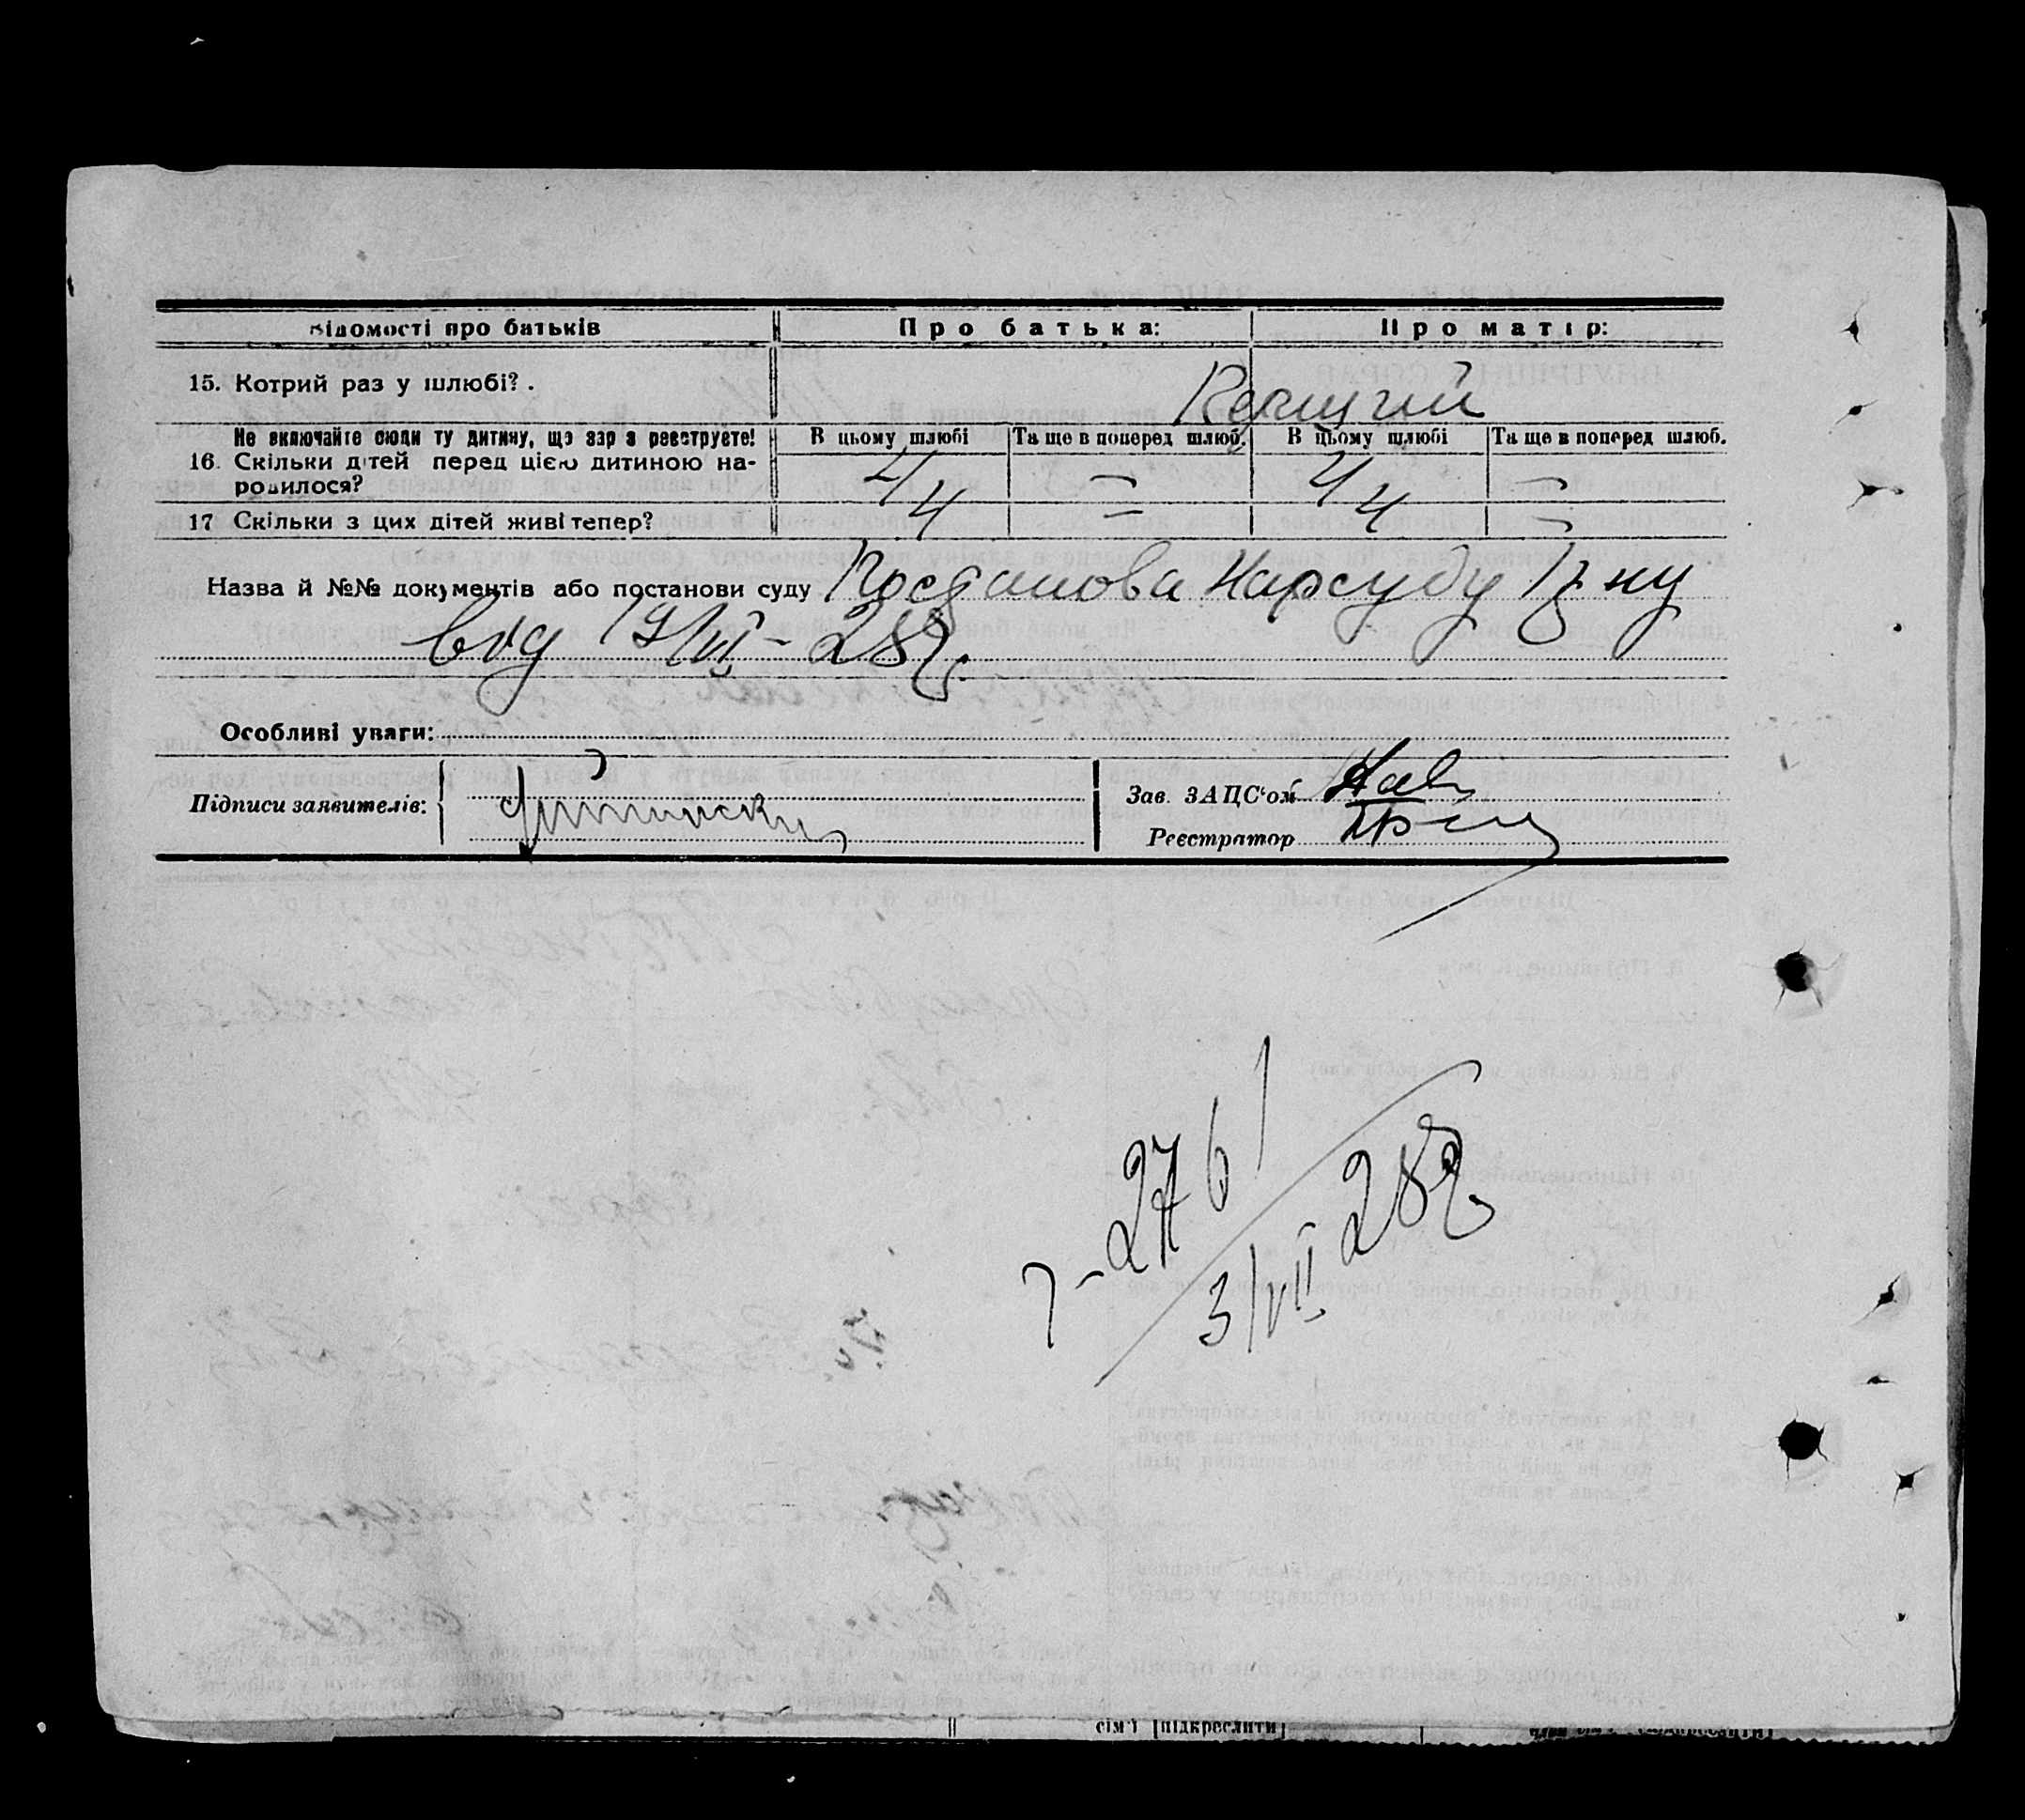 Відомості про батьків Про батька: Про матір:
15. Котрий раз у шлюбі? .
Не включайте сюди ту дитину, що зараз реєструєте! В цьому шлюбі Та ще в поперед шлюб. В цьому шлюбі Та ще в поперед шлюб.
16. Скільки дітей перед цією дитиною на-
родилося? 4 — 4 —
17 Скільки з цих дітей живі тепер? 4 — 4 —
Назва й №№ документів або постанови суду Постанова Нарсуду
від 19/VI - 28р.
Особливі уваги:
Підписи заявителів:
Зав. ЗАЦС'ом
Реєстратор
7-276
3/VII 28р.
сім'ї [підкреслити]